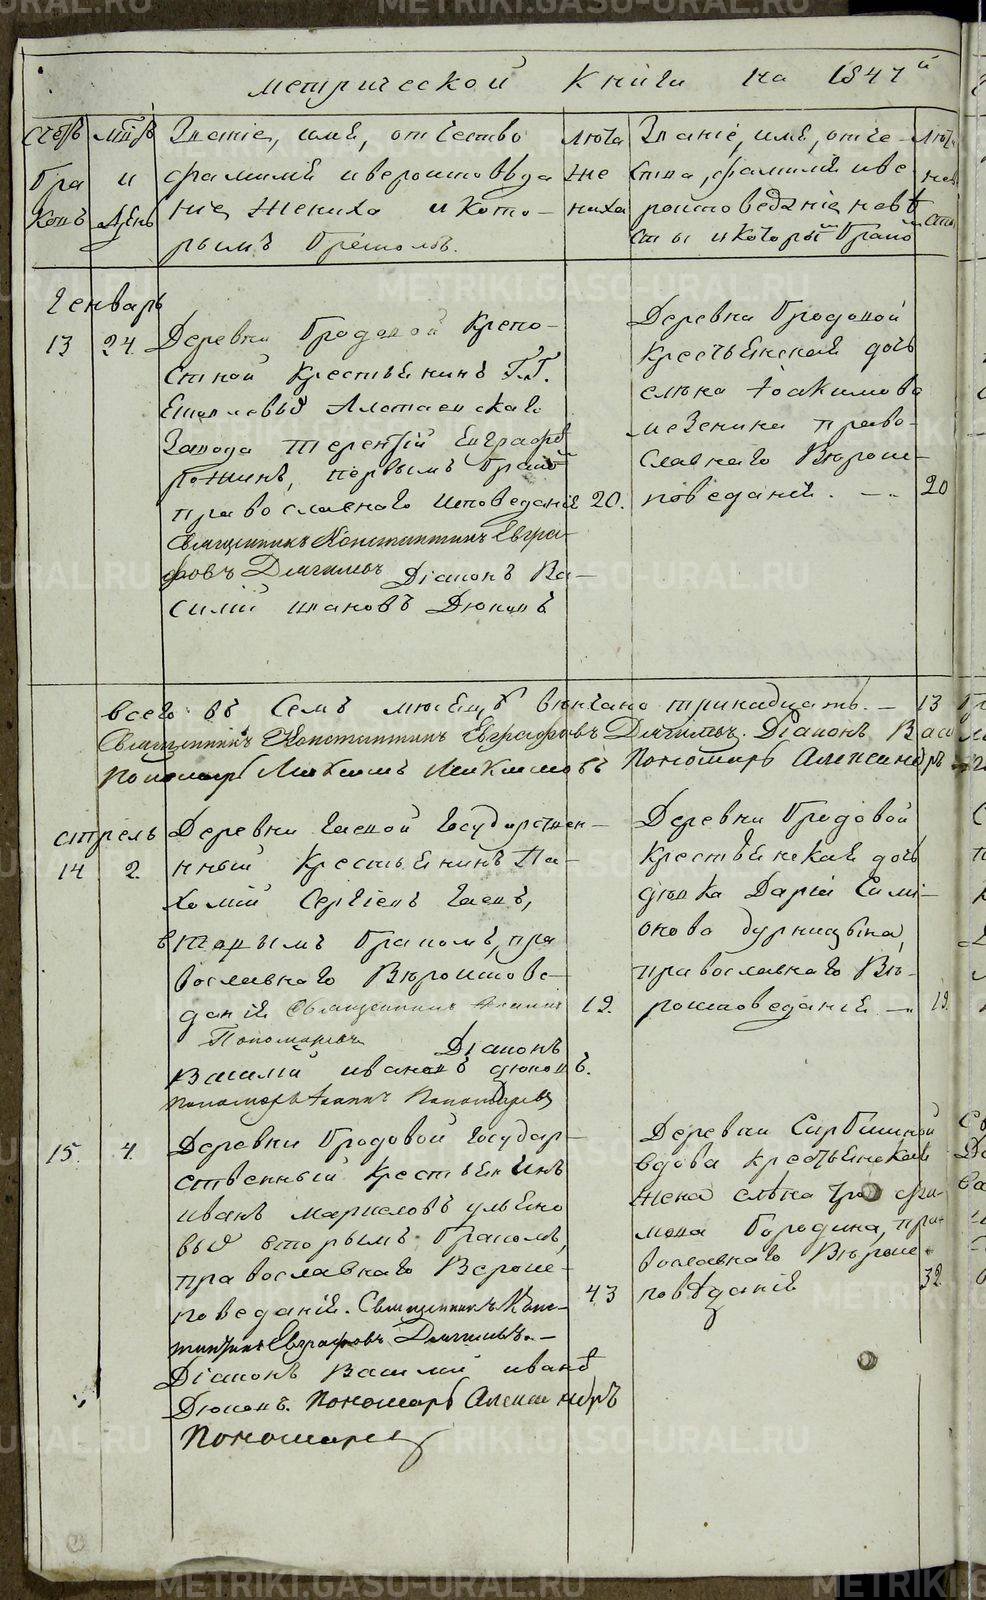 метрической книги на 1847й
Счетъ
бра
ковъ
мцъ
и
день
Званіе, имя, отчество
фамилія и вероисповеда
ніе жениха и кото-
рымъ бракомъ.
лета
же
ниха
Званіе, имя, отче-
ства, фамилія и ве-
роисповеданіе невѣ
сты и которой брако
лѣта
нев
сты
Генварь
13
24
Деревни Бродовой Крепо-
стной Крестьянинъ Г.Г.
Алапаевскаго
Завода Терентій Евграфо
первымъ брако
православного исповеданія
Священникъ Константинъ Евгра-
фовъ Дягилевъ Діаконъ Ва-
силій ивановъ Дюковъ
20.
Деревни Бродовой
Крестьянская дочь
Фекла Іоакимова
право-
славнаго Вѣрои-
поведанія. — -
20
всего въ Семъ месяцѣ вѣнчано тринадцать. — 13
Священникъ Константинъ Евграфовъ Дягилевъ. Діаконъ Васи
Пономарь Максимъ Максимовъ Пономарь Александръ
Апрель
14
2.
Деревни Гаевой Государствен-
нный Крестьянинъ Па-
хомій Сергіевъ Гаевъ,
вторымъ бракомъ, пра
вославнаго Вѣроиспове-
данія Священникъ Іоаннъ
Пономаревъ Діаконъ
Василій ивановъ Дюковъ.
Пономарь Іоаннъ Пономаревъ
19.
Деревни Бродовой
Крестьянская дочь
дѣвка Дарія Сими-
онова Дурницына,
православнаго Вѣ-
роисповеданія —
19.
15.
4.
Деревни Бродовой Государ-
ственный Крестьянинъ
иванъ Маркеловъ Ульяно
выхъ вторымъ бракомъ,
православнаго Вероис-
поведанія. Священникъ Конс-
тантинъ Евграфовъ Дягилевъ. —
Діаконъ Василій иванъ
Дюковъ. Пономарь Александръ
Пономаревъ
43
вдова крестьянская
жена Фекла
Бородина, пра-
вославнаго Вѣроис-
повѣданія
32.